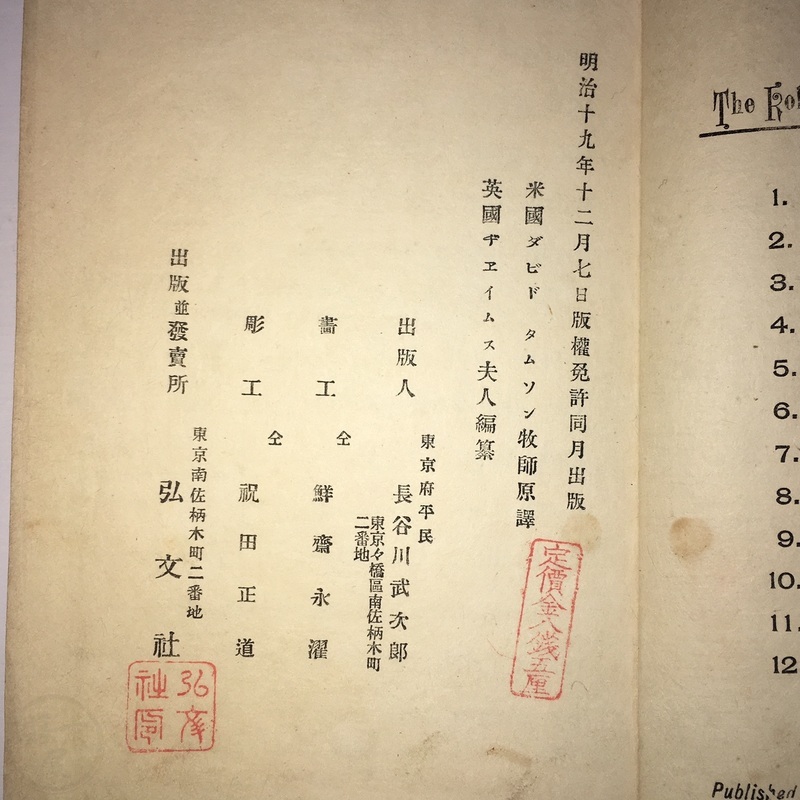 明治十九年十二月七日版權免許同月出版
米國ダビド タムソン牧師原譯
英國ヂヱイムス夫人編纂
定價金八錢五厘
東京府平民
出版人 長谷川武次郎
東京々橋區南佐柄木町
二番地
畵工 仝 鮮齋永濯
彫工 仝 祝田正道
出版並發賣所 東京南佐柄木町二番地
弘文社
The Kob
1.
2.
3.
4.
5.
6.
7.
8.
9.
10.
11.
12
Published